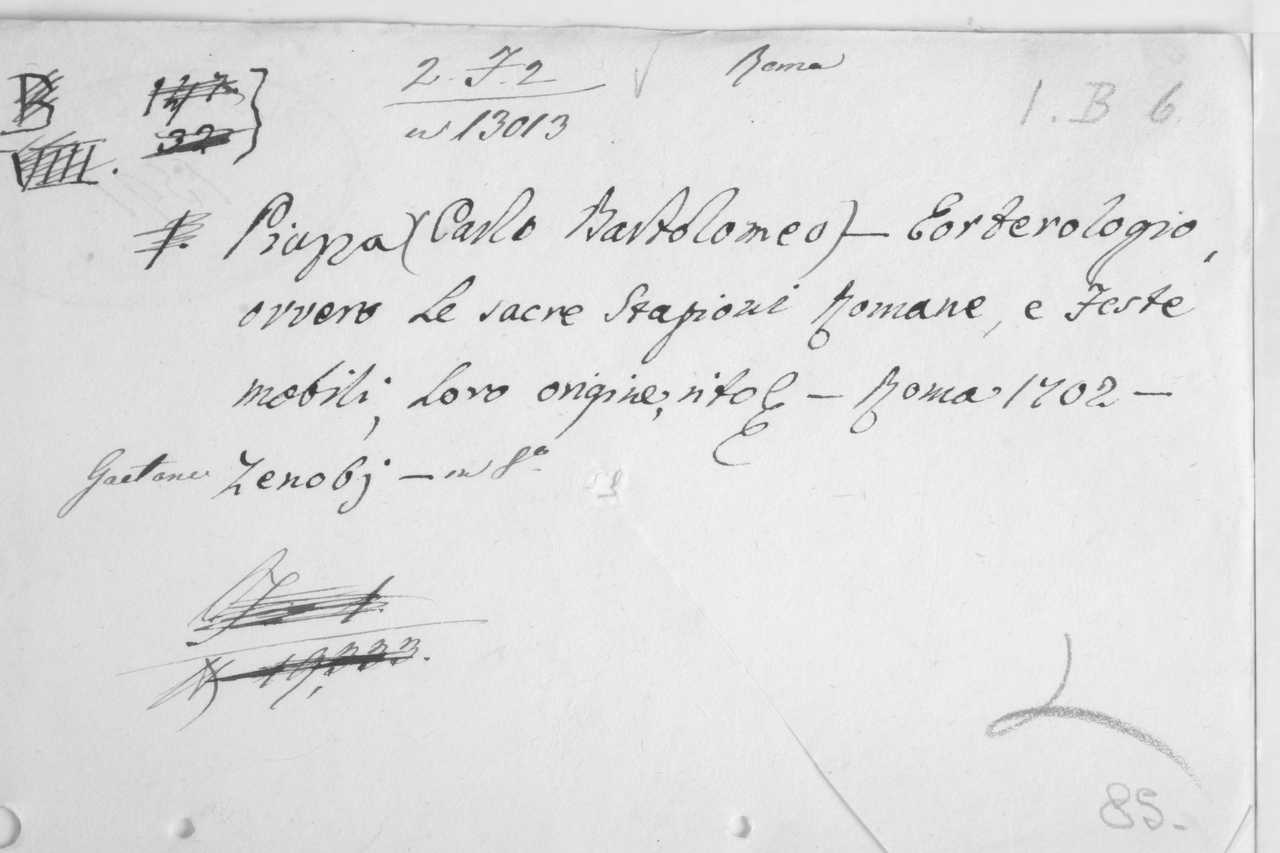 2. F. 2
Roma
n 13013
1. B 6.
Piazza (Carlo Bartolomeo) — Eorterologio,
ovvero le sacre Stazioni Romane, e Feste
mobili, loro origine, rito &c — Roma 1702 —
Gaetano Zenobj — in 8º
85.